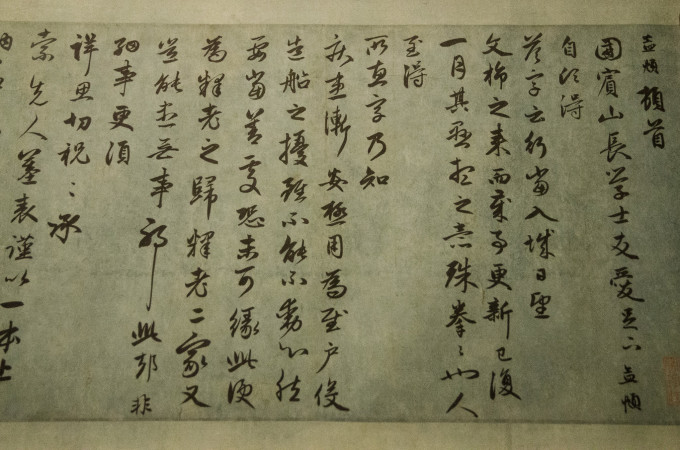 孟頫頓首
國賓山長學士友愛足下孟頫
自頃得
答字云行當入城日望
文旆之来而歲事更新已復
一月其為想之意殊拳〻也人
至得
所惠字乃知
疾患漸安極用為慰户役
造船之擾雖不能不動心然
要當善處恐未可緣此便
為釋老之歸釋老二家又
豈能盡無事耶此却非
細事更須
詳思切祝〻承
索先人墓表謹以一本上